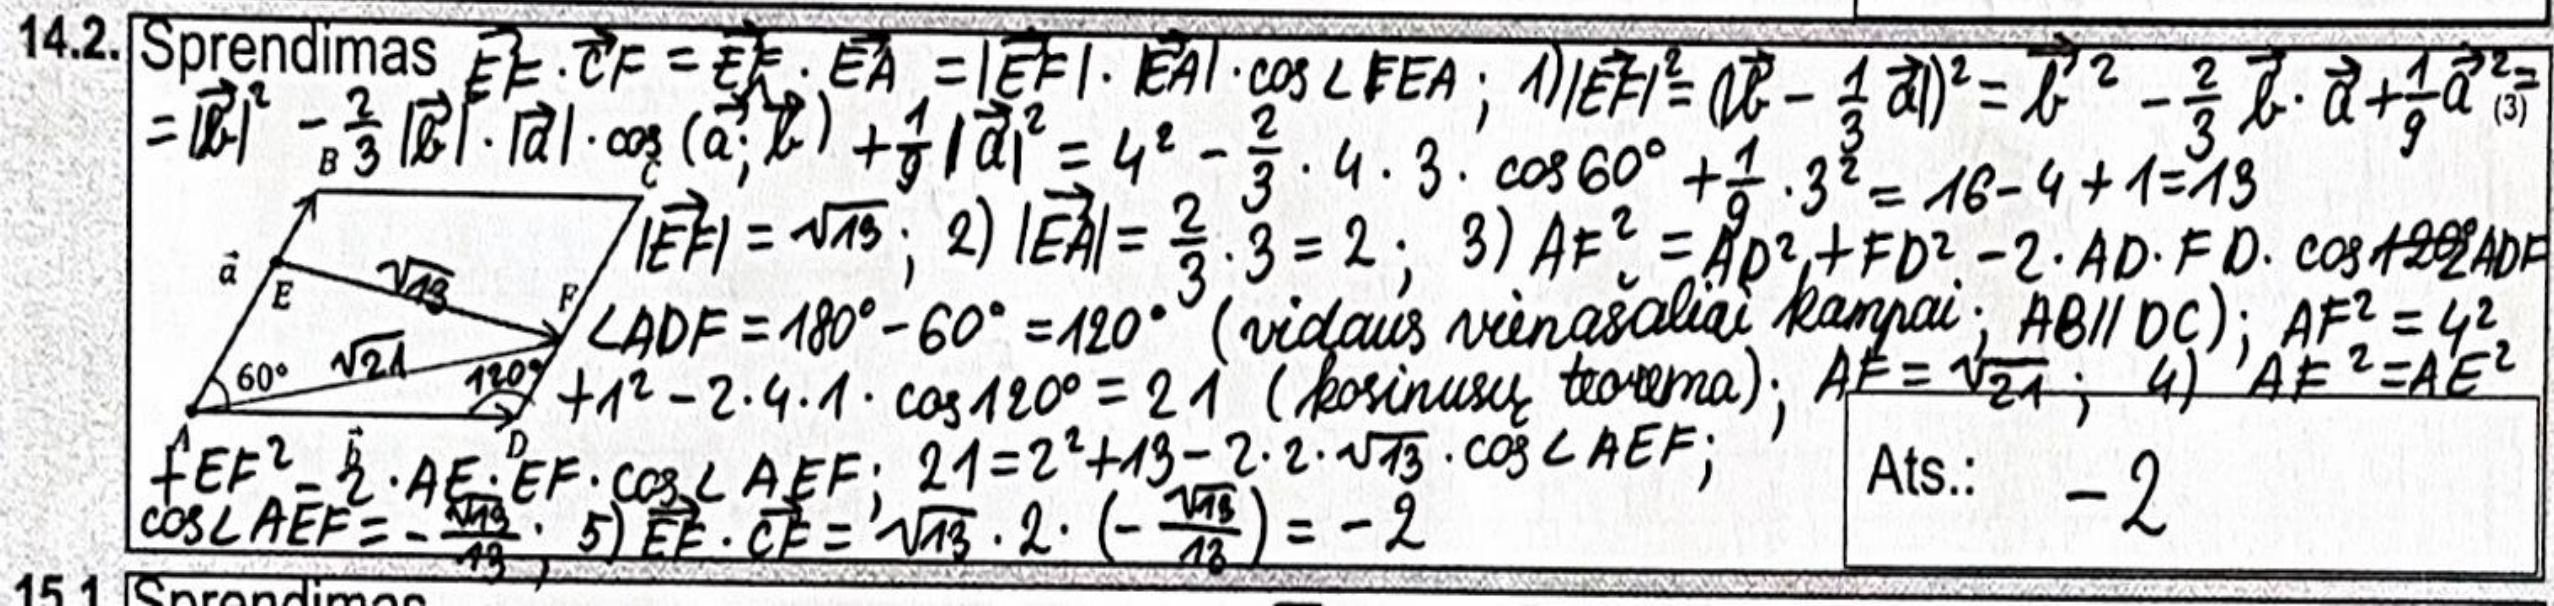 14.2. Sprendimas $\vec{EF} \cdot \vec{CF} = \vec{EF} \cdot \vec{EA} = |\vec{EF}| \cdot |\vec{EA}| \cdot \cos \angle FEA$ ; 1) $|\vec{EF}|^2 = (|\vec{b} - \frac{1}{3}\vec{a}|)^2 = \vec{b}^2 - \frac{2}{3}\vec{b} \cdot \vec{a} + \frac{1}{9}\vec{a}^2 =$
$= |\vec{b}|^2 - \frac{2}{3}|\vec{b}| \cdot |\vec{a}| \cdot \cos(\vec{a}; \vec{b}) + \frac{1}{9}|\vec{a}|^2 = 4^2 - \frac{2}{3} \cdot 4 \cdot 3 \cdot \cos 60° + \frac{1}{9} \cdot 3^2 = 16 - 4 + 1 = 13$ (3)
B C
$|\vec{EF}| = \sqrt{13}$ ; 2) $|\vec{EA}| = \frac{2}{3} \cdot 3 = 2$ ; 3) $AF^2 = AD^2 + FD^2 - 2 \cdot AD \cdot FD \cdot \cos \angle ADF$
$\vec{a}$ E $\sqrt{13}$ F
∠ADF = 180° - 60° = 120° (vidaus vienašaliai kampai; AB // DC); $AF^2 = 4^2$
60° $\sqrt{21}$ 120°
$+ 1^2 - 2 \cdot 4 \cdot 1 \cdot \cos 120° = 21$ (kosinusų teorema); $AF = \sqrt{21}$ ; 4) $AF^2 = AE^2$
A $\vec{b}$ D
$+ EF^2 - 2 \cdot AE \cdot EF \cdot \cos \angle AEF$; $21 = 2^2 + 13 - 2 \cdot 2 \cdot \sqrt{13} \cdot \cos \angle AEF$;
$\cos \angle AEF = -\frac{\sqrt{13}}{13}$ ; 5) $\vec{EF} \cdot \vec{CF} = \sqrt{13} \cdot 2 \cdot (-\frac{\sqrt{13}}{13}) = -2$
Ats.: -2
15.1. Sprendimas